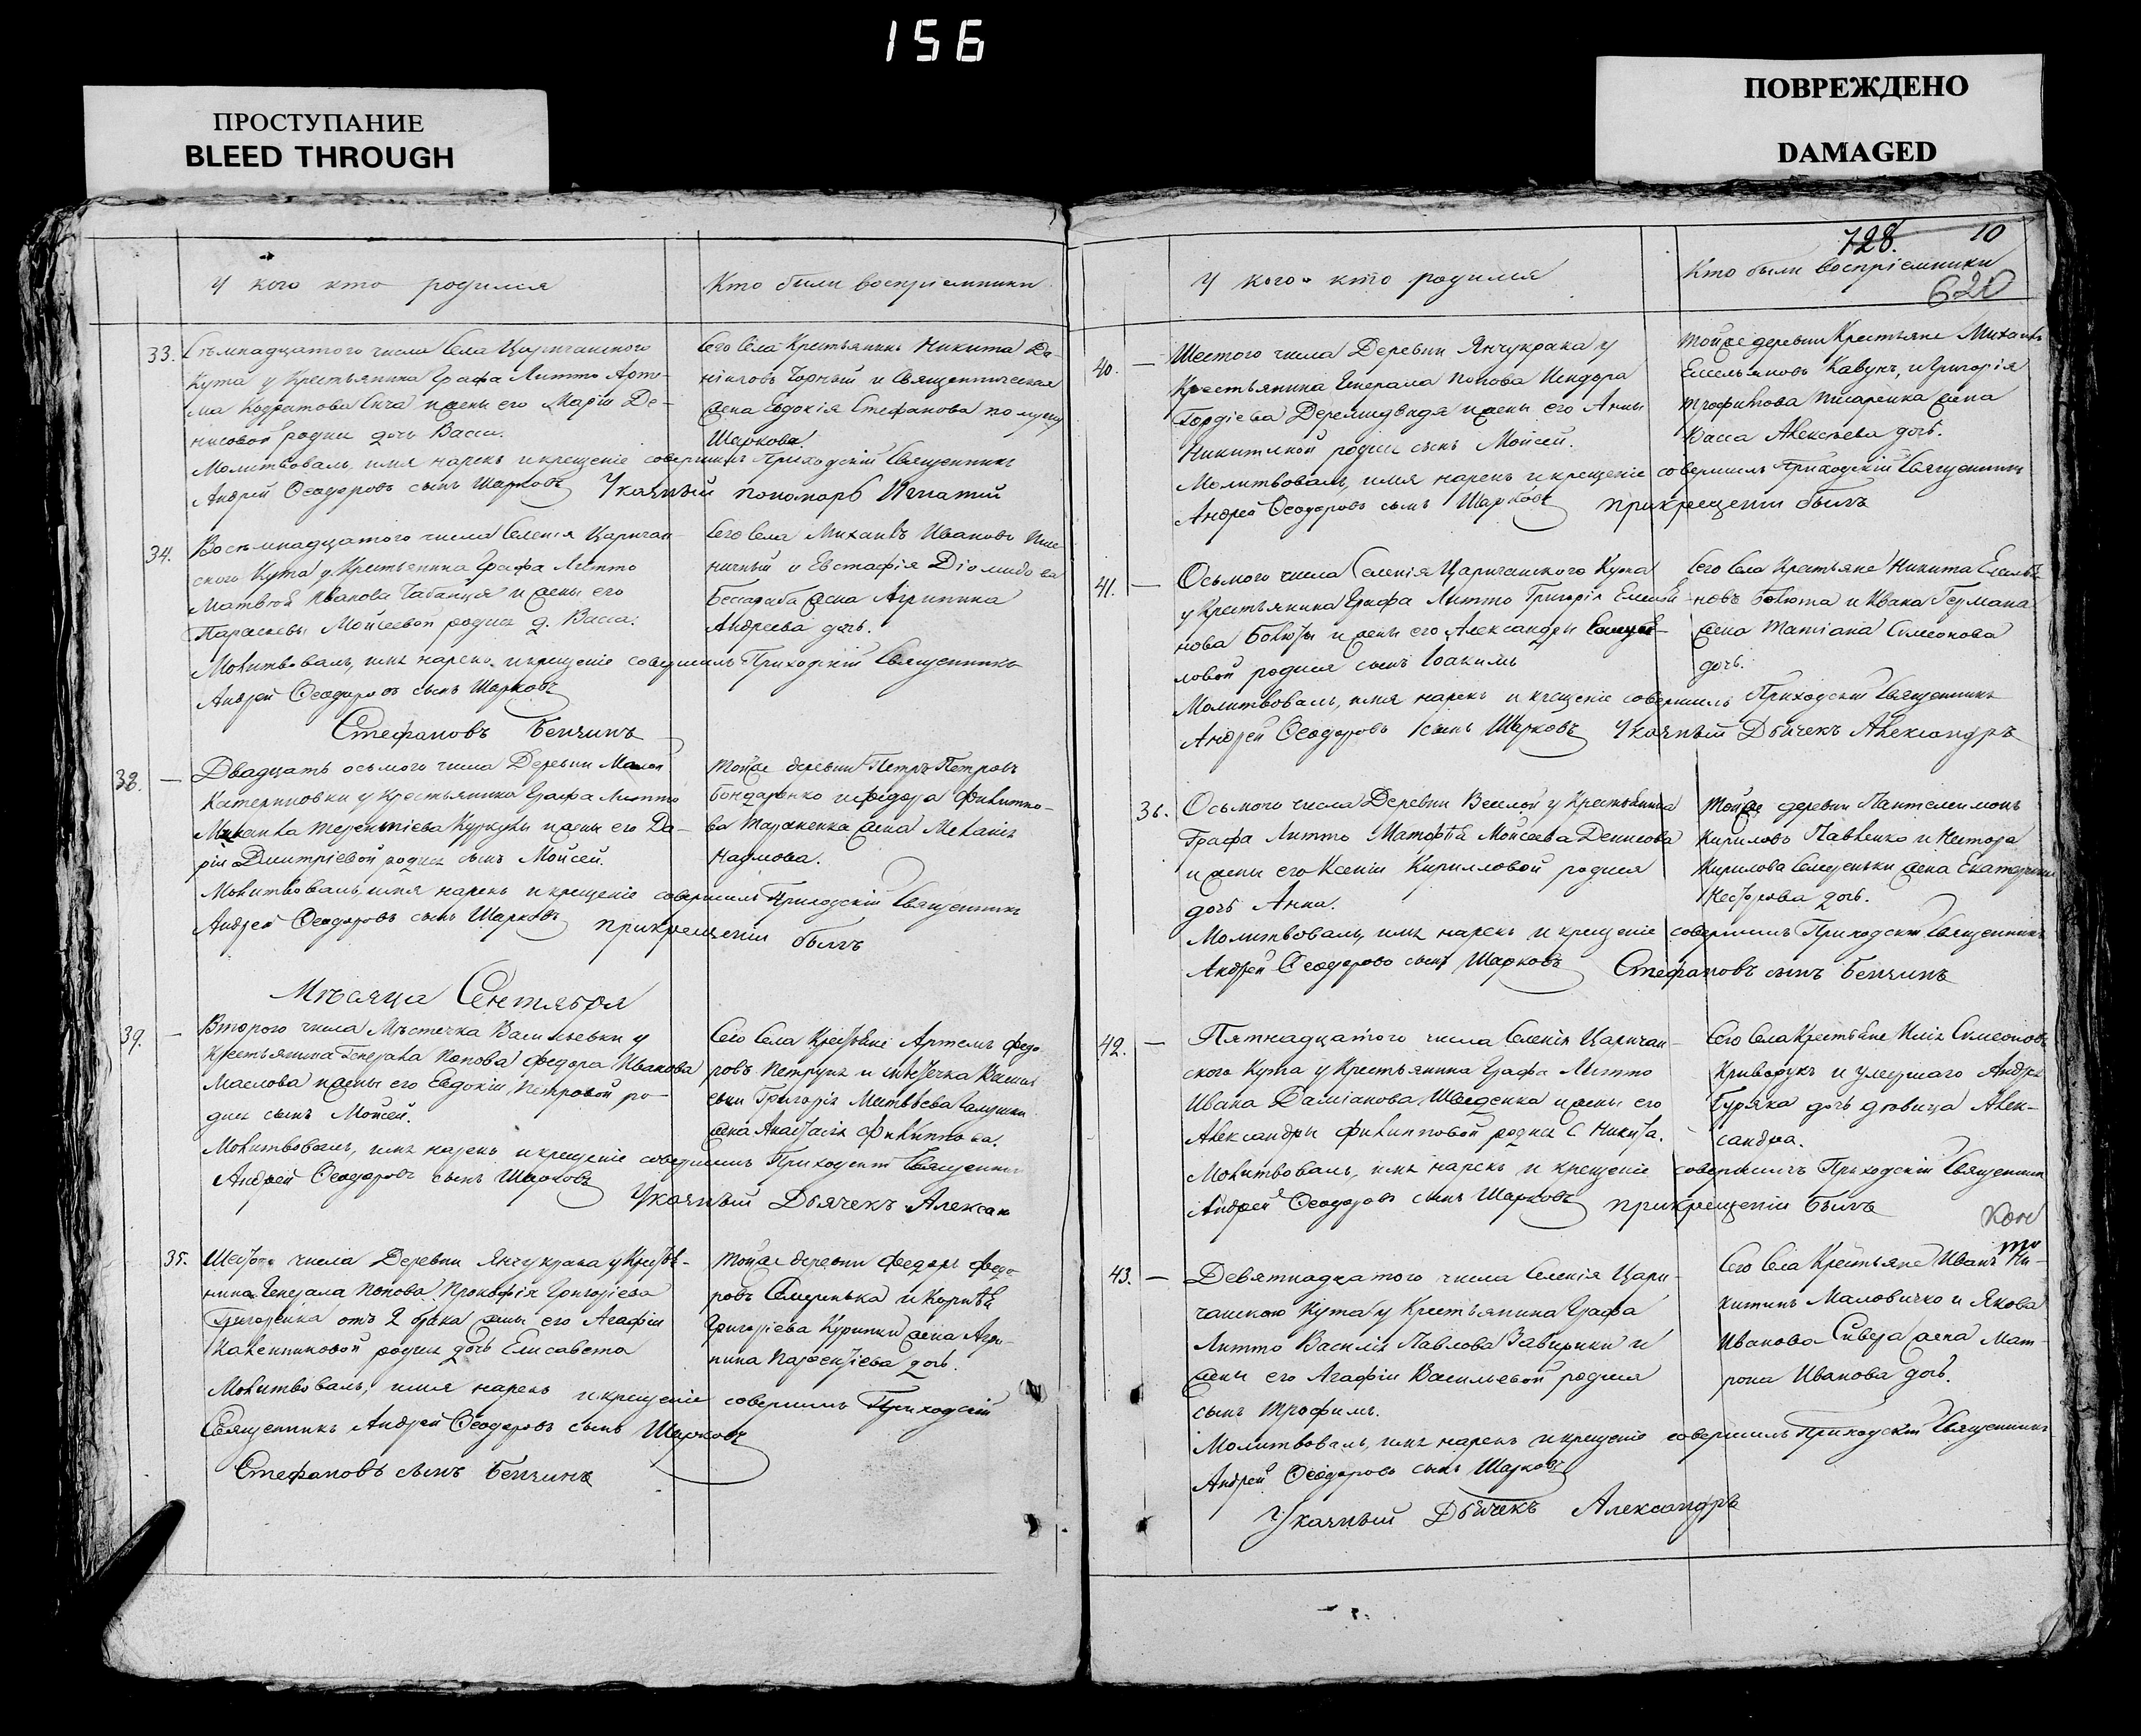 156
ПРОСТУПАНИЕ
BLEED THROUGH
ПОВРЕЖДЕНО
DAMAGED
У кого кто родился
Кто были воспріемники
33. Седмнадцатого числа Села Царичанского
Кута у Крестьянина Графа Литто Арте-
ма Кодратова Сича и жены его Маріи Де-
нисовой родися дочь Васса.
Сего Села Крестьянинъ Никита Да-
ніиловъ Чорный и Священническая
жена Евдокія Стефанова по мужу
Шаркова.
Молитвовалъ, имя нарекъ и крещеніе совершилъ Приходскій Священникъ
Андрей Ѳеодоровъ сынъ Шарковъ Указный пономарь Игнатий
34. Восьмнадцатого числа Селенія Царичан-
ского Кута у Крестьянина Графа Литто
Матвея Иванова Чабанця и жены его
Параскевы Мойсеевой родися д. Васса.
Сего Села Михаилъ Ивановъ
и Евстафія Діомидова
жена Агрипина
Андреева дочь.
Молитвовалъ, имя нарекъ и крещеніе совершилъ Приходскій Священникъ
Андрей Ѳеодоровъ сынъ Шарковъ
Стефановъ Бенчинъ
38. — Двадцать осьмого числа Деревни Малой
Катериновки у Крестьянина Графа Литто
Михаила Терентіева и жены его Да-
ріи Дмитріевой родися сынъ Мойсей.
Тойже деревни Петръ Петровъ
Бондаренко и Федора Филиппо-
ва Тараненка жена Меланія
Наумова.
Молитвовалъ, имя нарекъ и крещеніе совершилъ Приходскій Священникъ
Андрей Ѳеодоровъ сынъ Шарковъ прикрещении былъ
Мѣсяца Сентября
39. — Второго числа Мѣстечка Васильевки у
Крестьянина Генерала Попова Федора Иванова
Маслова и жены его Евдокіи Петровой ро-
дися сынъ Мойсей.
Сего Села Крестьяне Артемъ Федо-
ровъ Петрунь и мѣстечка Василь-
евки Григорія Матвѣева Галушки
жена Анастасія Филиппова.
Молитвовалъ, имя нарекъ и крещеніе совершилъ Приходскій Священникъ
Андрей Ѳеодоровъ сынъ Шарковъ Указный Дьячекъ Алексан
35. Шестого числа Деревни Янчукрака у Крестья-
нина Генерала Попова Прокофія Григоріева
Григоренка отъ 2 брака жены его Агафіи
Калениковой родися дочь Елисавета
Тойже деревни Федоръ Федо-
ровъ Семенька и Корнѣя
Григоріева Курипки жена Агри-
пина Парфентіева дочь.
Молитвовалъ, имя нарекъ и крещеніе совершилъ Приходскій
Священникъ Андрей Ѳеодоровъ сынъ Шарковъ
Стефановъ сынъ Бенчинъ
728. 10
620
У кого кто родился
Кто были воспріемники
40. — Шестого числа Деревни Янчукрака у
Крестьянина Генерала Попова Исидора
Гордіева Деремидведя и жены его Анны
Никитиной родися сынъ Мойсей.
Тойже деревни Крестьяне Михаилъ
Емельяновъ Кавунъ, и Григорія
Трофимова Писаренка жена
Васса Алексѣева дочь.
Молитвовалъ, имя нарекъ и крещеніе совершилъ Приходскій Священникъ
Андрей Ѳеодоровъ сынъ Шарковъ прикрещении былъ
41. — Осьмого числа Селенія Царичанского Кута
у Крестьянина Графа Литто Григорія Емелья-
нова Болюты и жены его Александры
ловой родися сынъ Іоакимъ
Сего Села Крестьяне Никита Емелья-
новъ Болюта и Ивана Германа
жена Татіана Симеонова
дочь.
Молитвовалъ, имя нарекъ и крещеніе совершилъ Приходскій Священникъ
Андрей Ѳеодоровъ сынъ Шарковъ Указный Дьячекъ Александръ
36. Осьмого числа Деревни Веселой у Крестьянина
Графа Литто Матофѣя Мойсеева Денисова
и жены его Ксеніи Кирилловой родися
дочь Анна.
Тойже деревни Пантелеимонъ
Кириловъ Павленко и Нестора
Кирилова Семененьки жена Екатерина
Несторова дочь.
Молитвовалъ, имя нарекъ и крещеніе совершилъ Приходскій Священникъ
Андрей Ѳеодоровъ сынъ Шарковъ Стефановъ сынъ Бенчинъ
42. — Пятнадцатого числа Селенія Царичан-
ского Кута у Крестьянина Графа Литто
Ивана Даміанова Шведенка и жены его
Александры Филипповой родися с Никита.
Сего Села Крестьяне Илія Симеоновъ
Криворукъ и умершаго Андрея
Буряка дочь дѣвица Алек-
сандра.
Молитвовалъ, имя нарекъ и крещеніе совершилъ Приходскій Священникъ
Андрей Ѳеодоровъ сынъ Шарковъ прикрещении былъ
43. — Девятнадцатого числа Селенія Цари-
чанского Кута у Крестьянина Графа
Литто Василія Павлова Завирюхи и
жены его Агафіи Васильевой родися
сынъ Трофимъ.
Сего Села Крестьяне Иванъ Ни-
китинъ Маловичко и Якова
Иванова Сивера жена Мат-
рона Иванова дочь.
Молитвовалъ, имя нарекъ и крещеніе совершилъ Приходскій Священникъ
Андрей Ѳеодоровъ сынъ Шарковъ
Указный Дьячекъ Александръ